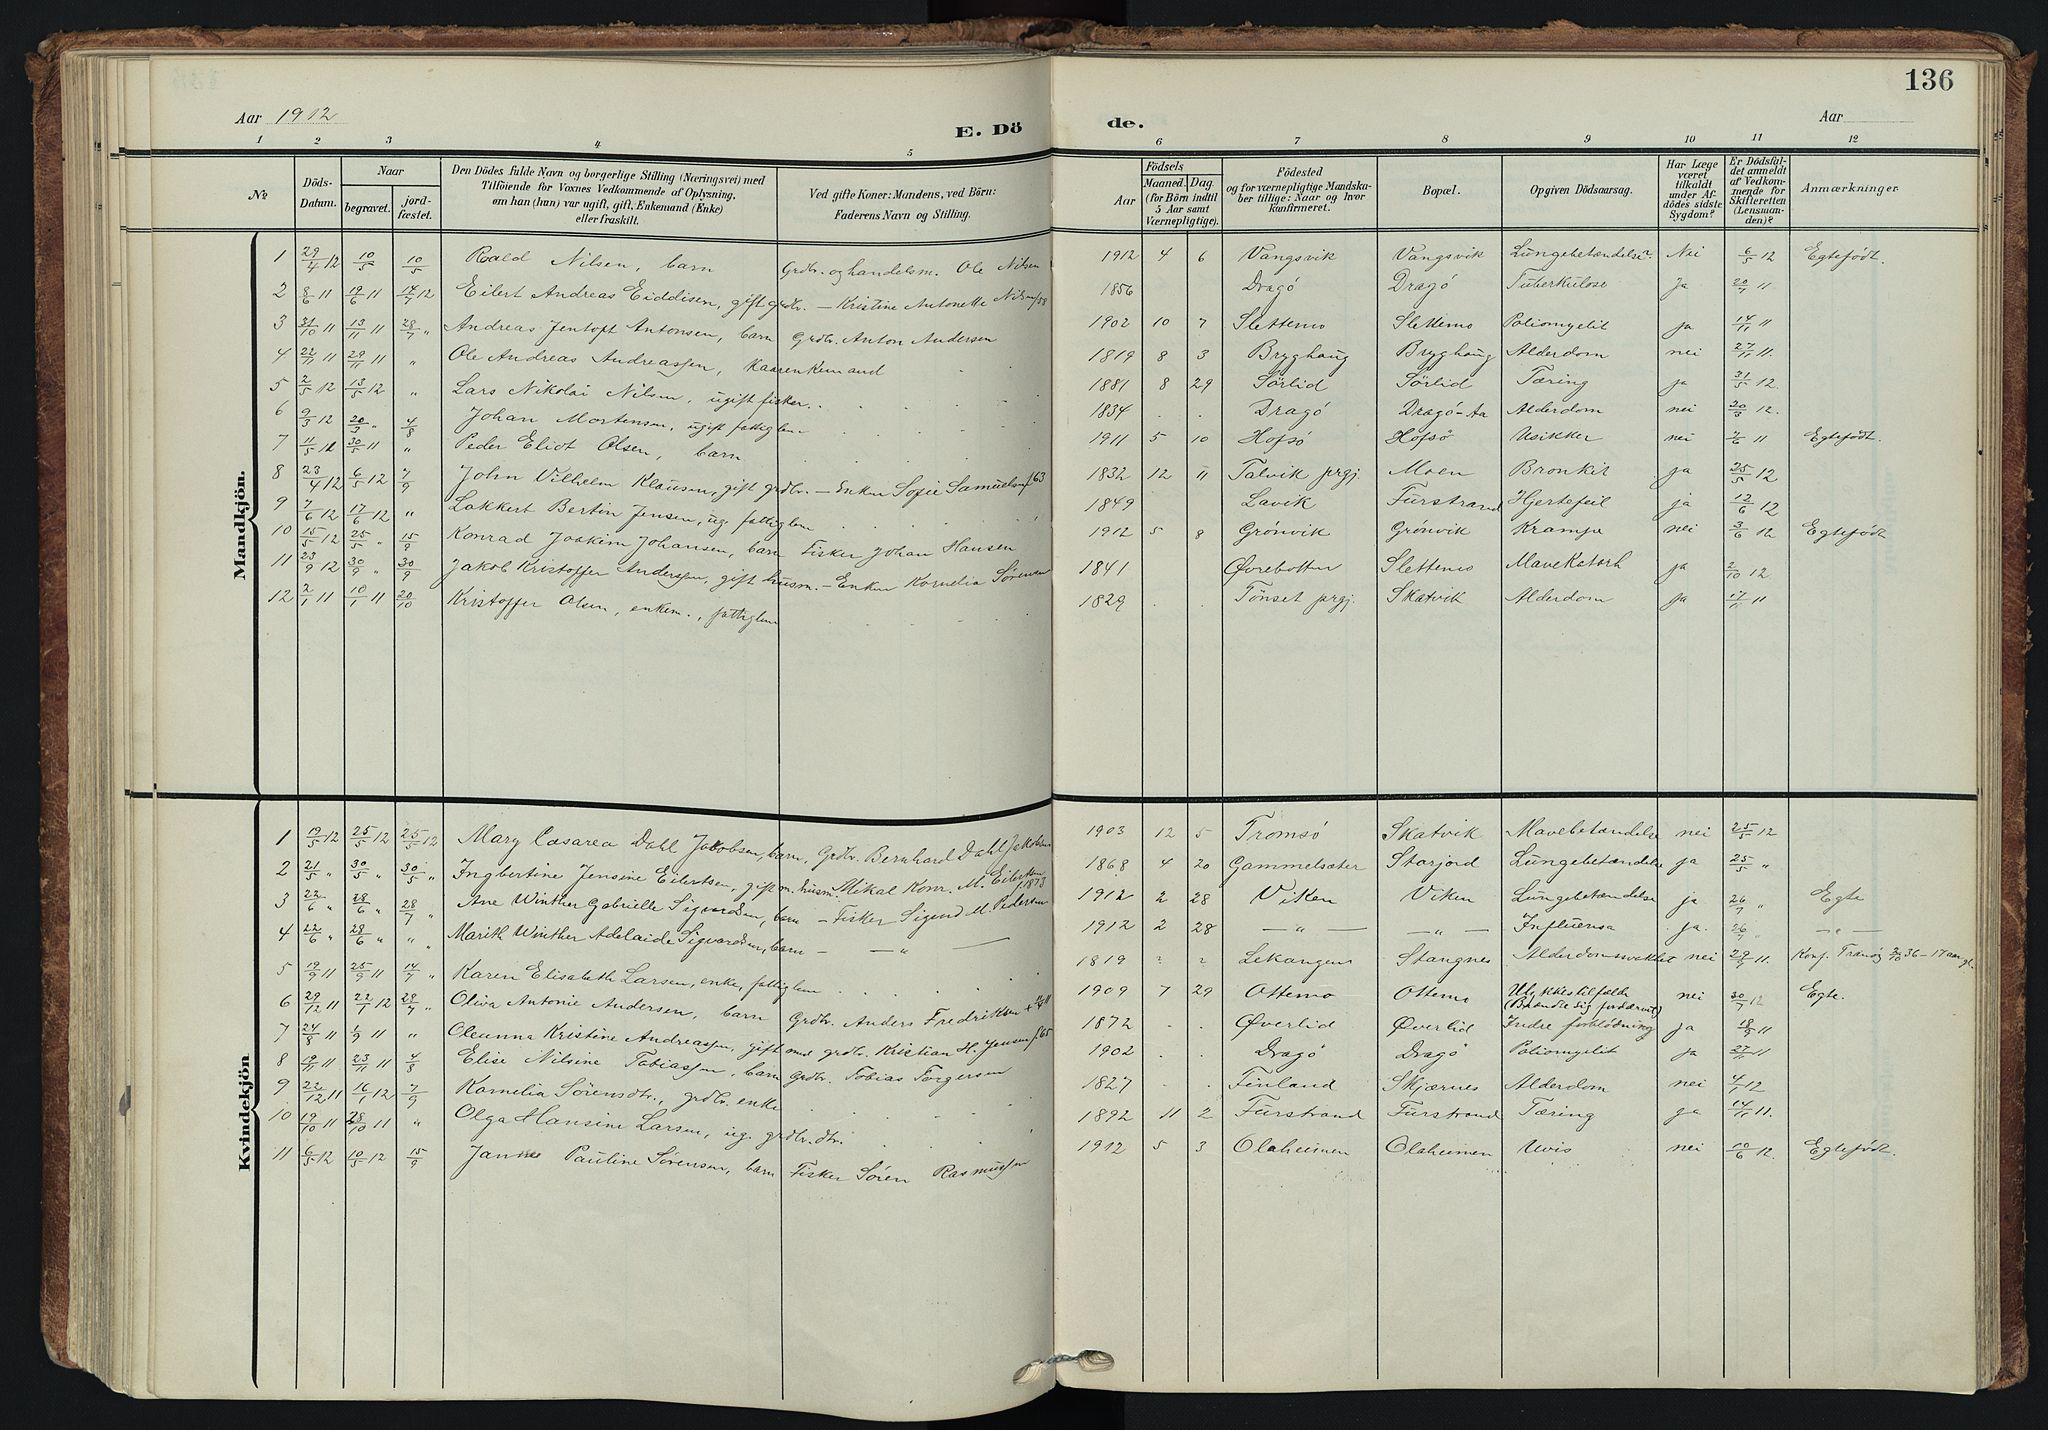 136
Aar 1912
E. Dö
de.
Aar
1 2 3 4 5 6 7 8 9 10 11 12
No.
Döds-Datum.
Naar
begravet.
jord-fæstet.
Den Dödes fulde Navn og borgerlige Stilling (Næringsvei) med
Tilföiende for Voxnes Vedkommende af Oplysning,
om han (hun) var ugift, gift, Enkemand (Enke)
eller fraskilt.
Ved gifte Koner: Mandens, ved Börn:
Faderens Navn og Stilling.
Födsels
Aar
Maaned. Dag.
(for Börn indtil
5 Aar samt
Værnepligtige).
Födested
og for værnepligtige Mandska-
ber tillige: Naar og hvor
konfirmeret.
Bopæl.
Opgiven Dödsaarsag.
Har Læge
været
tilkaldt
under Af-
dödes sidste
Sygdom?
Er Dödsfal-
det anmeldt
af Vedkom-
mende for
Skifteretten
(Lensman-
den)?
Anmærkninger.
Mandkjön.
1 29/4 12 10/5 10/5 Roald Nilsen, barn Grdbr. og handelsm. Ole Nilsen 1912 4 6 Vangsvik Vangsvik Lungebetændelse Nei 6/5 12 Egtefödt.
2 8/6 11 19/6 11 14/7 12 Eilert Andreas Eiddisen, gift grdbr. – Kristine Antonette Nilsen f58 1856 Dragö Dragö Tuberkulose Ja 20/7 11
3 31/10 11 13/11 11 28/7 „ Andreas Jentoft Antonsen, barn Grdbr. Anton Andersen 1902 10 7 Slettemo Slettemo Poliomyelit ja 14/11 11
4 22/11 11 29/11 11 „ Ole Andreas Andreassen, kaarenkemand 1819 8 3 Bryghaug Bryghaug Alderdom nei 27/11 11.
5 2/5 12 13/5 12 „ Lars Nikolai Nilsen, ugift fisker. 1881 8 29 Sörlid Sörlid Tæring ja 31/5 12.
6 9/3 12 20/3 „ 4/8 Johan Mortensen, ugift fattiglem 1834 . . Dragö Dragö-Aa Alderdom nei 20/3 12.
7 11/5 12 30/5 11 „ Peder Eliot Olsen, barn 1911 5 10 Hofsö Hofsö Usikker nei 7/6 11 Egtefödt.
8 23/4 12 6/5 12 7/9 John Vilhelm Klausen, gift grdbr. – Enken Sofie Samuelsen f63 1832 12 11 Talvik prgj. Moen Bronkit ja 25/5 12
9 7/6 12 17/6 12 „ Lokkert Bertin Jensen, ug. fattiglem 1849 Lavik Furstrand Hjertefeil ja 12/6 12
10 15/5 12 25/5 „ 15/9 Konrad Joakim Johansen, barn Fisker Johan Hansen 1912 5 8 Grönvik Grönvik Krampe nei 3/6 12 Egtefödt
11 23/9 12 30/9 „ 30/9 Jakob Kristoffer Anderssen, gift husm. – Enken Kornelia Sörensen 1841 Övrebotten Slettenes Mavekatarh ja 2/10 12
12 2/1 11 10/1 11 20/10 Kristoffer Olsen, enkem., fattiglem 1829 . . Tönset prgj. Skatvik Alderdom ja 17/1 11
Kvindekjön
1 19/5 12 25/5 12 25/5 12 Mary Cæsarea Dahl Jakobsen, barn, Grdbr. Bernhard Dahl Jakobsen 1903 12 5 Tromsö Skatvik Mavebetændelse nei 25/5 12
2 21/5 „ 30/5 „ 30/5 „ Ingbertine Jensine Eilertsen, gift m. husm. Mikal Konr. M. Eilertsen f. 1873 1868 4 20 Gammelsæter Storjord Lungebetændelse ja 25/5 „
3 22/6 „ 28/6 „ 28/7 „ Ane Winther Gabrielle Sigvardsen, barn – Fisker Sigvard M. Pedersen 1912 2 28 Viken Viken Lungebetændelse ja 26/7 „ Egte
4 22/6 „ 28/6 „ „ „ Marith Winther Adelaide Sigvardsen, barn – „ – 1912 2 28 – „ – – „ – Influensa ja. 26/7 „ – „ –
5 19/9 11 25/9 11 14/7 „ Karen Elisabeth Larsen, enke, fattiglem 1819 ? ? Lekangen Stangnes Alderdomssvakhet nei 29/9 11. Konf. Tranöy 2/10 36 – 17 aar gl.
6 29/12 11 22/1 12 28/7 „ Oliva Antonie Andersen, barn Grdbr. Anders Fredriksen + 11/4 11 1909 7 29 Ottemo Ottemo Ulykkestilfælde (Brændte sig fordærvet) nei 30/1 12 Egte.
7 24/8 11 1/9 11 „ Oleanna Kristine Andreassen, gift med grdbr. Kristian H. Jensen f.65 1872 . . Överlid Överlid Indre forblödning ja 18/9 11
8 19/11 11 23/11 11 4/8 Elise Nilsine Tobiassen, barn Grdbr. Tobias Torgersen 1902 . . Dragö Dragö Poliomyelit ja 27/11 11
9 22/12 11 16/1 12 7/9 Kornelia Sörensdtr., grdbr. enke 1827 . . Finland Skjærnes Alderdom nei 4/1 12
10 19/10 11 28/10 11 „ Olga Hansine Larsen, ug. grdbr. dtr. 1892 11 2 Furstrand Furstrand Tæring ja 14/11 11.
11 6/5 12 10/5 12 15/9 Janne Pauline Sörensen, barn Fisker Sören Rasmussen 1912 5 3 Olaheimen Olaheimen Uvis nei 10/6 12. Egtefödt.